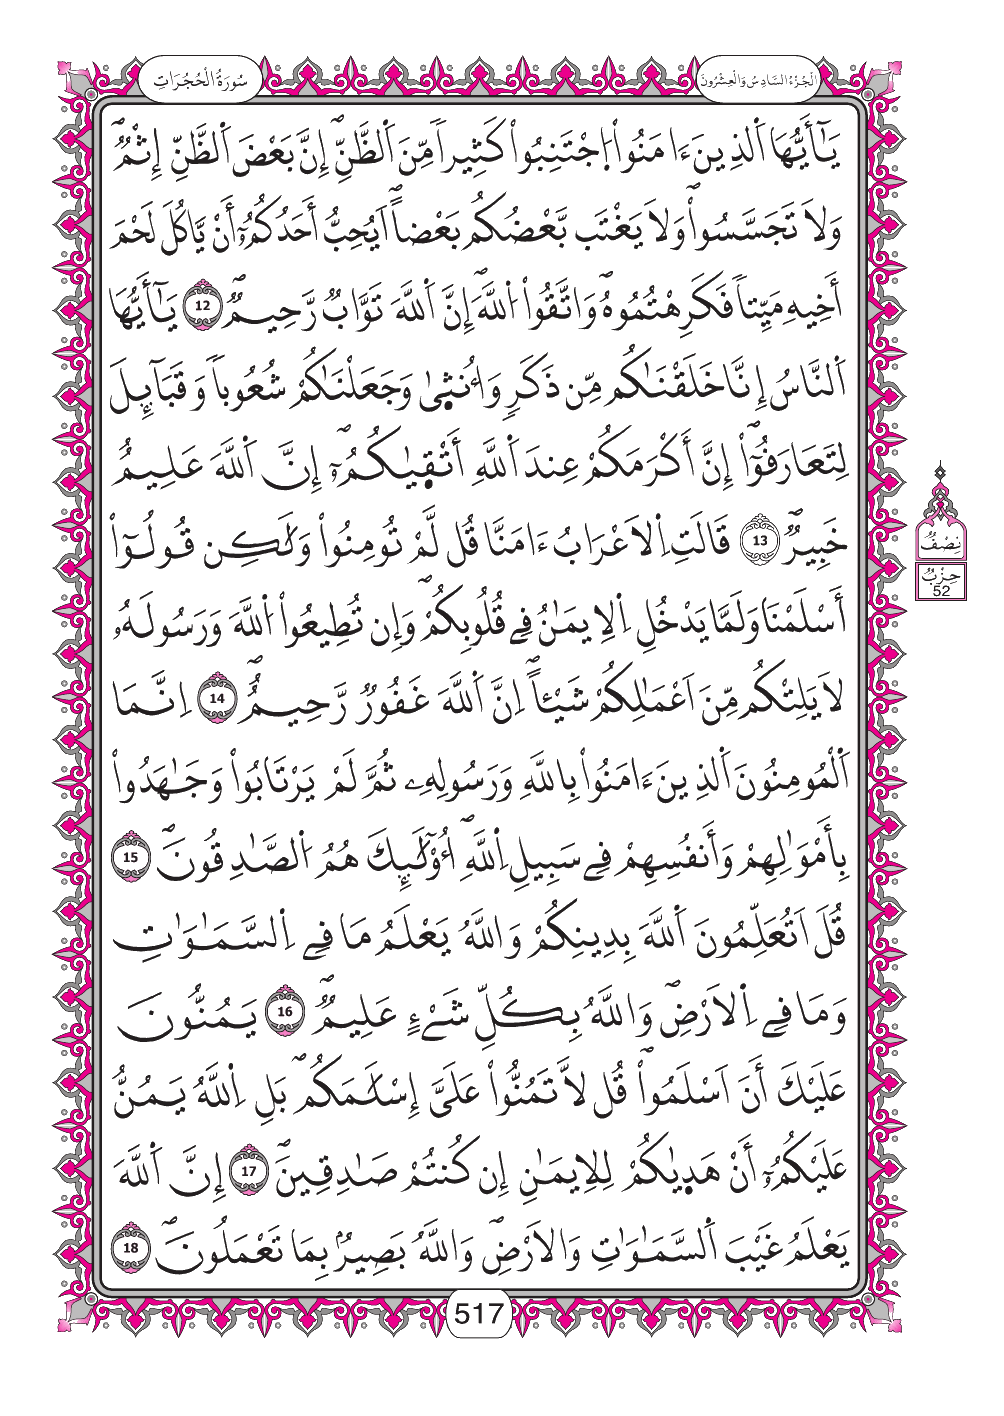 سُورَةُ الْحُجُرَاتِ
الْجُزْءُ السَّادِسُ وَالْعِشْرُونَ
يَٰٓأَيُّهَا اَ۬لذِينَ ءَامَنُواْ اُ۪جْتَنِبُواْ كَثِيراٗ مِّنَ اَ۬لظَّنِّۖ إِنَّ بَعْضَ اَ۬لظَّنِّ إِثْمٞۖ
وَلَا تَجَسَّسُواْۖ وَلَا يَغْتَب بَّعْضُكُم بَعْضاًۖ اَيُحِبُّ أَحَدُكُمُۥٓ أَنْ يَّاكُلَ لَحْمَ
أَخِيهِ مَيِّتاٗ فَكَرِهْتُمُوهُۖ وَاتَّقُواْ اُ۬للَّهَۖ إِنَّ اَ۬للَّهَ تَوَّابٞ رَّحِيمٞۖ 12 يَٰٓأَيُّهَا
اَ۬لنَّاسُ إِنَّا خَلَقْنَٰكُم مِّن ذَكَرٖ وَأُنثۭيٰ وَجَعَلْنَٰكُمْ شُعُوباٗ وَقَبَآئِلَ
لِتَعَارَفُوٓاْۖ إِنَّ أَكْرَمَكُمْ عِندَ اَ۬للَّهِ أَتْقۭيٰكُمُۥٓۖ إِنَّ اَ۬للَّهَ عَلِيمٌ
خَبِيرٞۖ 13 قَالَتِ اِ۬لَاعْرَابُ ءَامَنَّا قُل لَّمْ تُومِنُواْ وَلَٰكِن قُولُوٓاْ
أَسْلَمْنَا وَلَمَّا يَدْخُلِ اِ۬لِايمَٰنُ فِے قُلُوبِكُمْۖ وَإِن تُطِيعُواْ اُ۬للَّهَ وَرَسُولَهُۥ
لَا يَلِتْكُم مِّنَ اَعْمَٰلِكُمْ شَيْـٔاًۖ اِنَّ اَ۬للَّهَ غَفُورٞ رَّحِيمٌۖ 14 اِنَّمَا
اَ۬لْمُومِنُونَ اَ۬لذِينَ ءَامَنُواْ بِاللَّهِ وَرَسُولِهِۦ ثُمَّ لَمْ يَرْتَابُواْ وَجَٰهَدُواْ
بِأَمْوَٰلِهِمْ وَأَنفُسِهِمْ فِے سَبِيلِ اِ۬للَّهِۖ أُوْلَٰٓئِكَ هُمُ اُ۬لصَّٰدِقُونَۖ 15
قُلَ اَتُعَلِّمُونَ اَ۬للَّهَ بِدِينِكُمْ وَاللَّهُ يَعْلَمُ مَا فِے اِ۬لسَّمَٰوَٰتِ
وَمَا فِے اِ۬لَارْضِۖ وَاللَّهُ بِكُلِّ شَےْءٍ عَلِيمٞۖ 16 يَمُنُّونَ
عَلَيْكَ أَنَ اَسْلَمُواْۖ قُل لَّا تَمُنُّواْ عَلَيَّ إِسْلَٰمَكُمۖ بَلِ اِ۬للَّهُ يَمُنُّ
عَلَيْكُمُۥٓ أَنْ هَدۭيٰكُمْ لِلِايمَٰنِ إِن كُنتُمْ صَٰدِقِينَۖ 17 إِنَّ اَ۬للَّهَ
يَعْلَمُ غَيْبَ اَ۬لسَّمَٰوَٰتِ وَالَارْضِۖ وَاللَّهُ بَصِيرُۢ بِمَا تَعْمَلُونَۖ 18
نِصْفُ
حِزْبُ
52
517